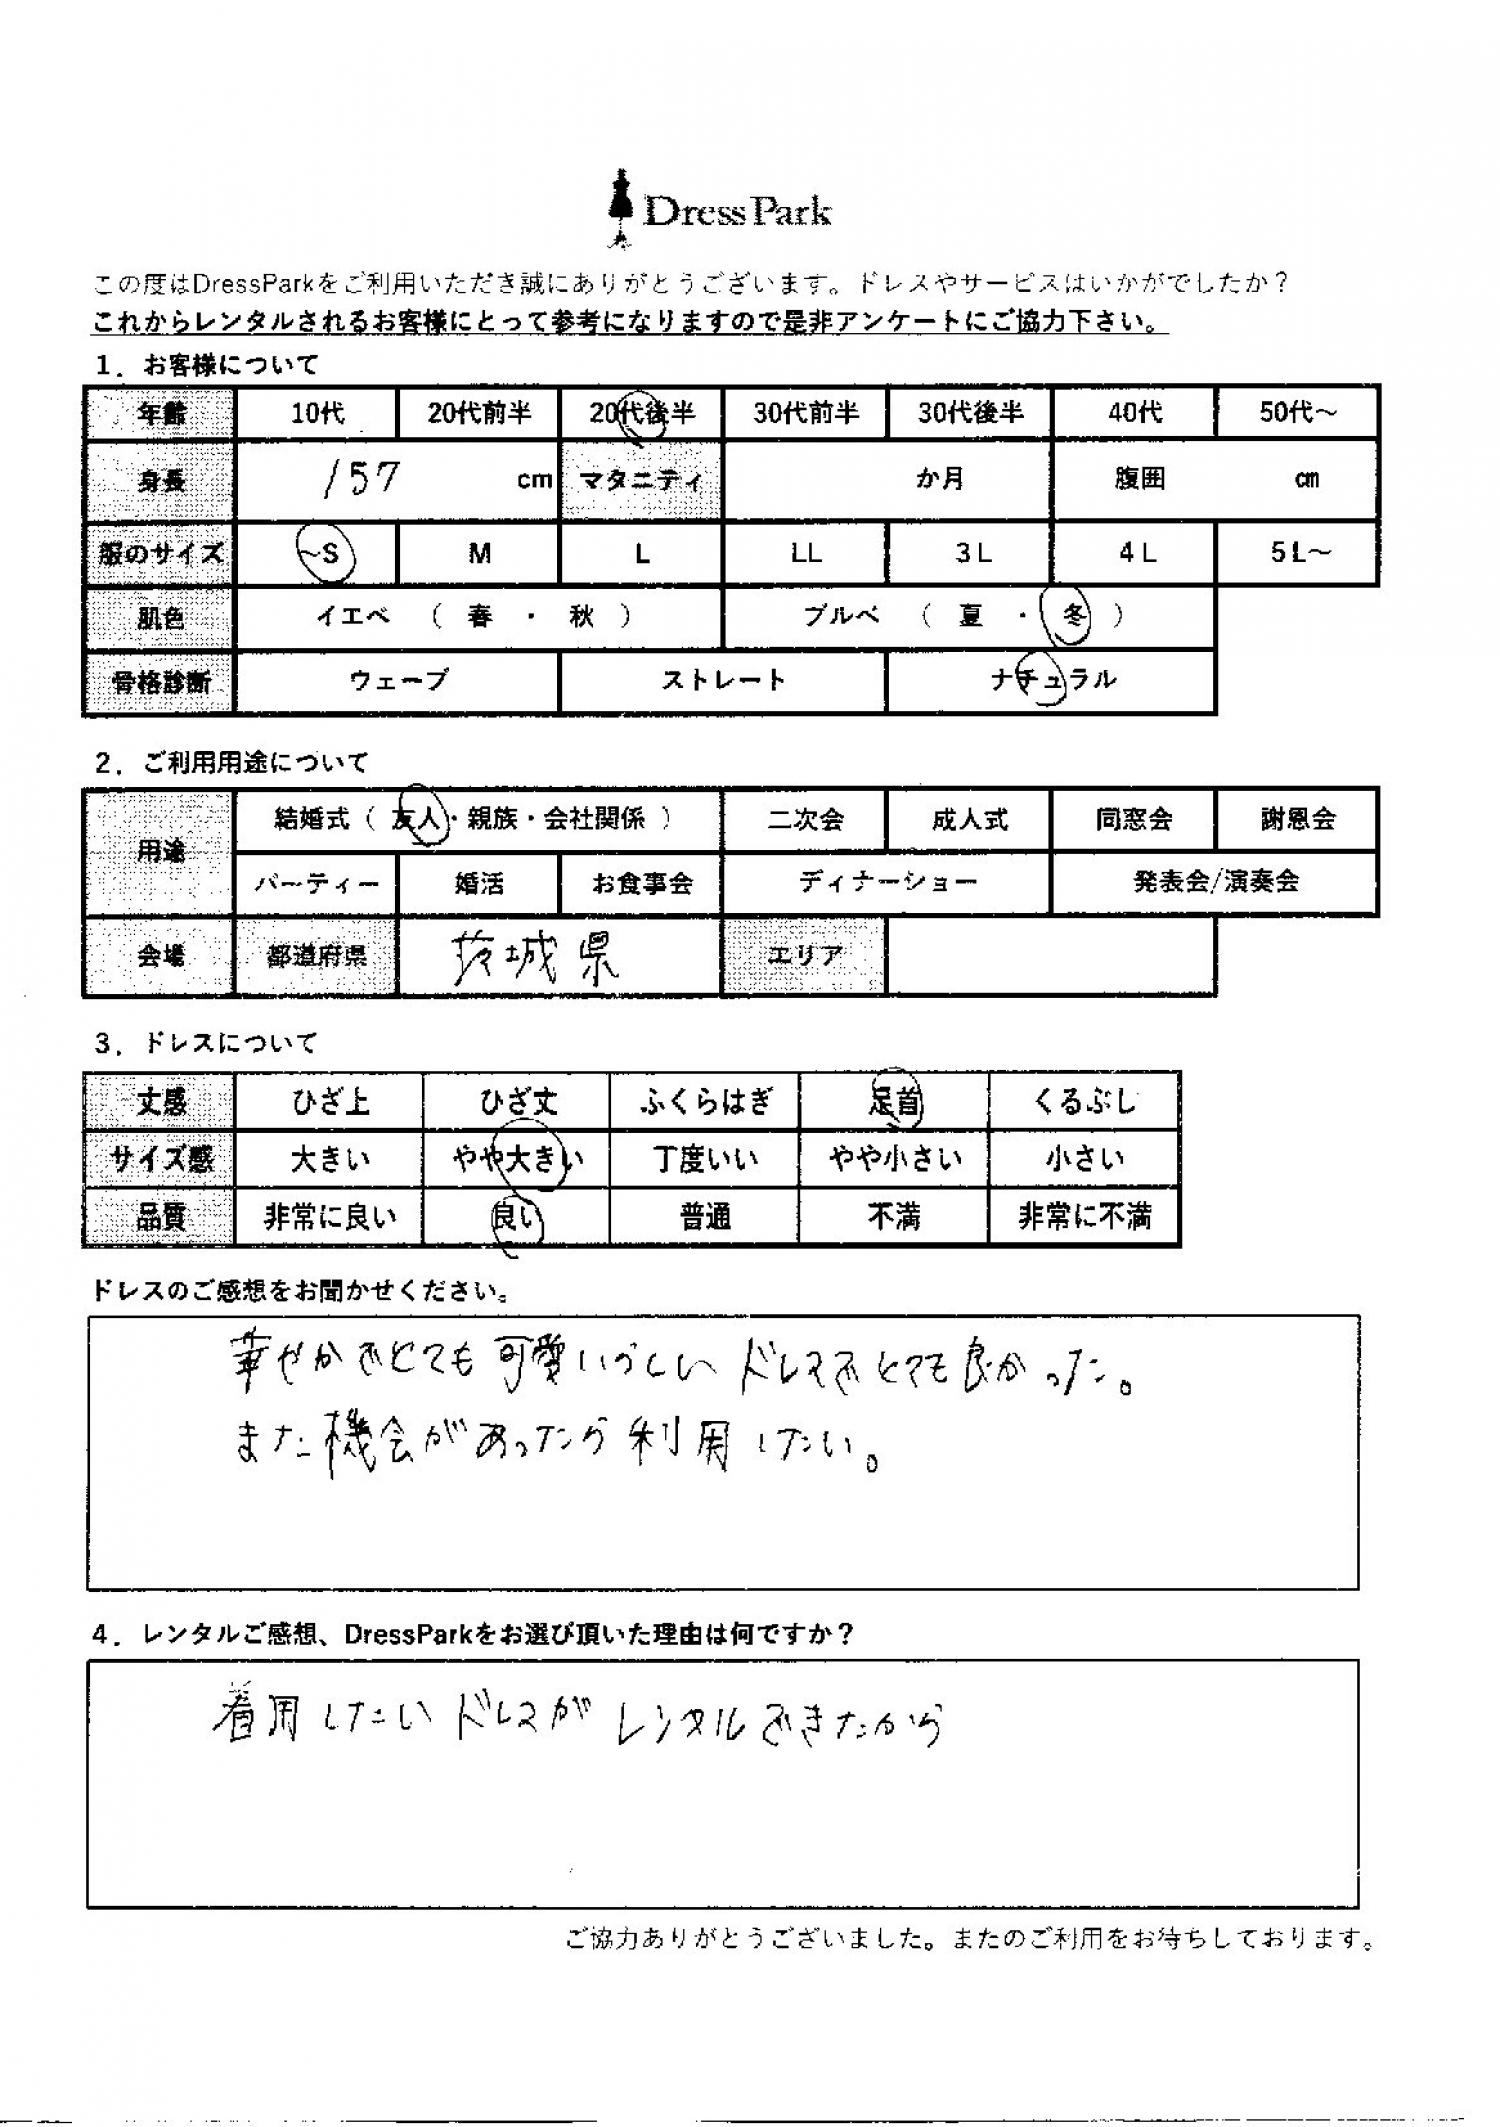 DressPark
この度はDressParkをご利用いただき誠にありがとうございます。ドレスやサービスはいかがでしたか？
これからレンタルされるお客様にとって参考になりますので是非アンケートにご協力下さい。
1．お客様について
年齢 10代 20代前半 20代後半 30代前半 30代後半 40代 50代～
身長 157 cm マタニティ か月 腹囲 cm
服のサイズ ～S M L LL 3L 4L 5L～
肌色 イエベ （ 春 ・ 秋 ） ブルベ （ 夏 ・ 冬 ）
骨格診断 ウェーブ ストレート ナチュラル
2．ご利用用途について
用途 結婚式（ 友人・親族・会社関係 ） 二次会 成人式 同窓会 謝恩会
パーティー 婚活 お食事会 ディナーショー 発表会/演奏会
会場 都道府県 茨城県 エリア
3．ドレスについて
丈感 ひざ上 ひざ丈 ふくらはぎ 足首 くるぶし
サイズ感 大きい やや大きい 丁度いい やや小さい 小さい
品質 非常に良い 良い 普通 不満 非常に不満
ドレスのご感想をお聞かせください。
華やかでとても可愛いらしいドレスでとても良かった。
また機会があったら利用したい。
4．レンタルご感想、DressParkをお選び頂いた理由は何ですか？
着用したいドレスがレンタルできたから
ご協力ありがとうございました。またのご利用をお待ちしております。